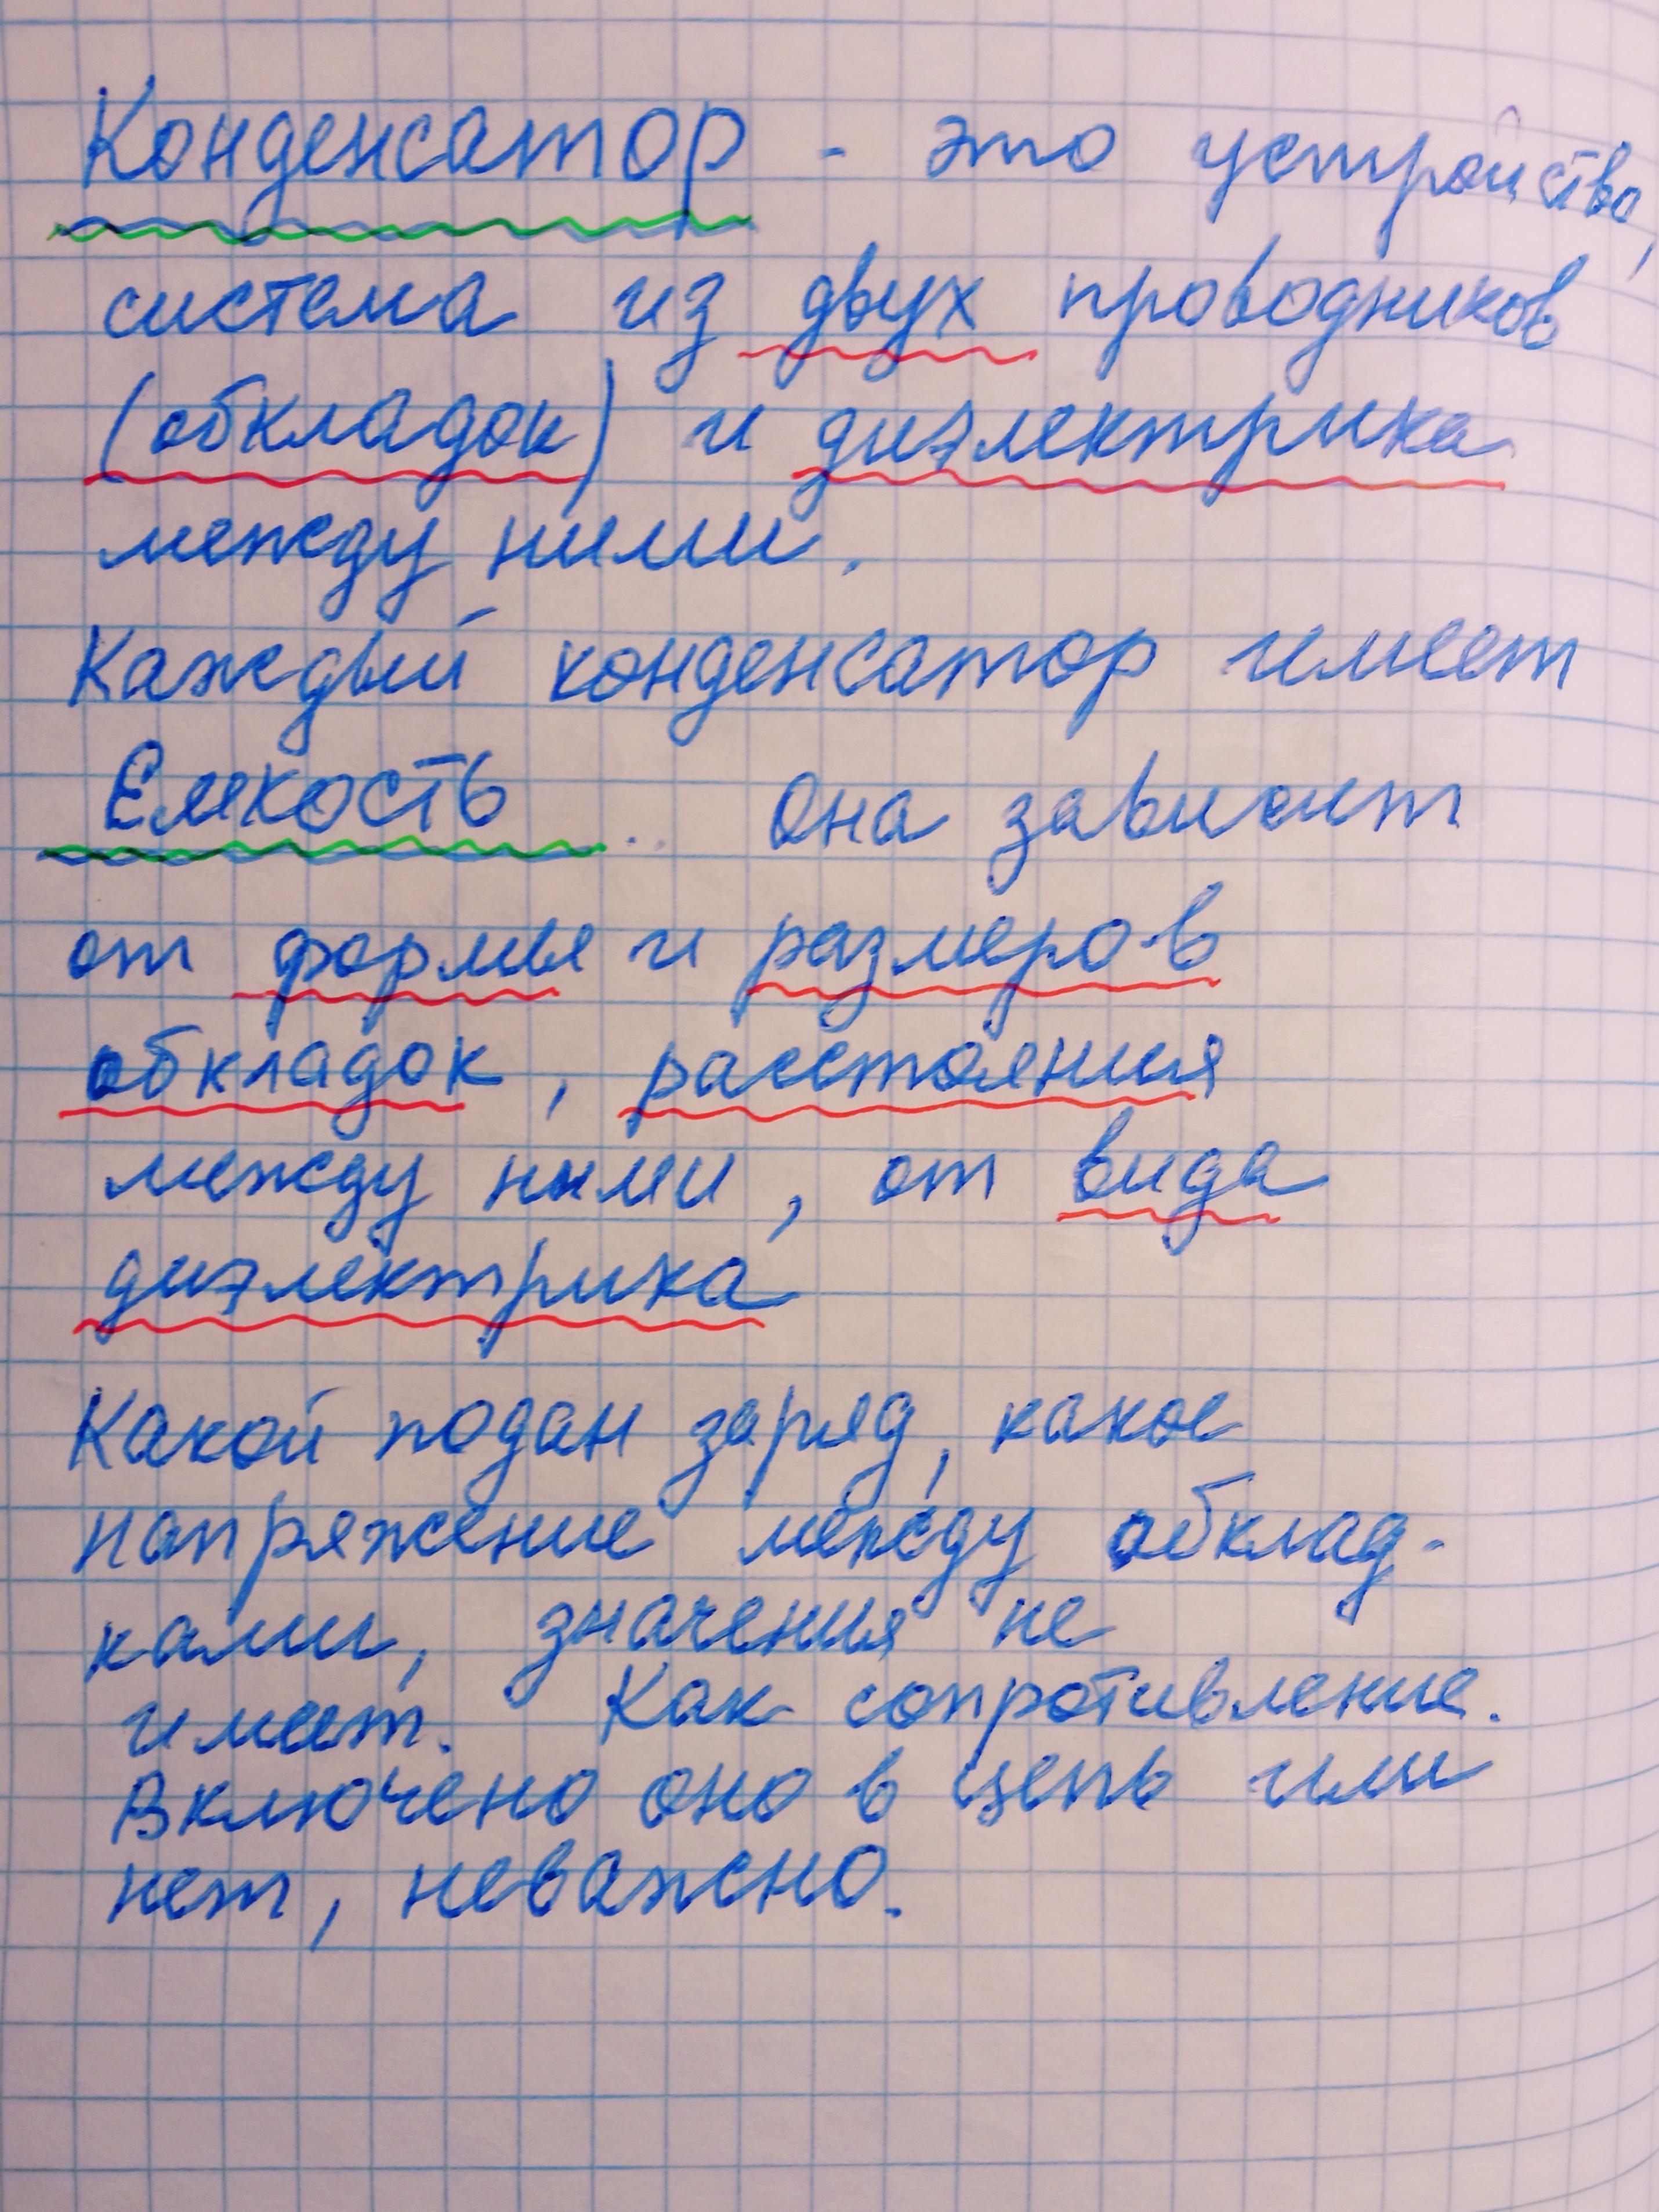 Конденсатор - это устройство,
система из двух проводников
(обкладок) и диэлектрика
между ними.
Каждый конденсатор имеет
Емкость. Она зависит
от формы и размеров
обкладок, расстояния
между ними, от вида
диэлектрика
Какой подан заряд, какое
напряжение между обклад-
ками, значения не
имеет. Как сопротивление.
Включено оно в цепь или
нет, неважно.